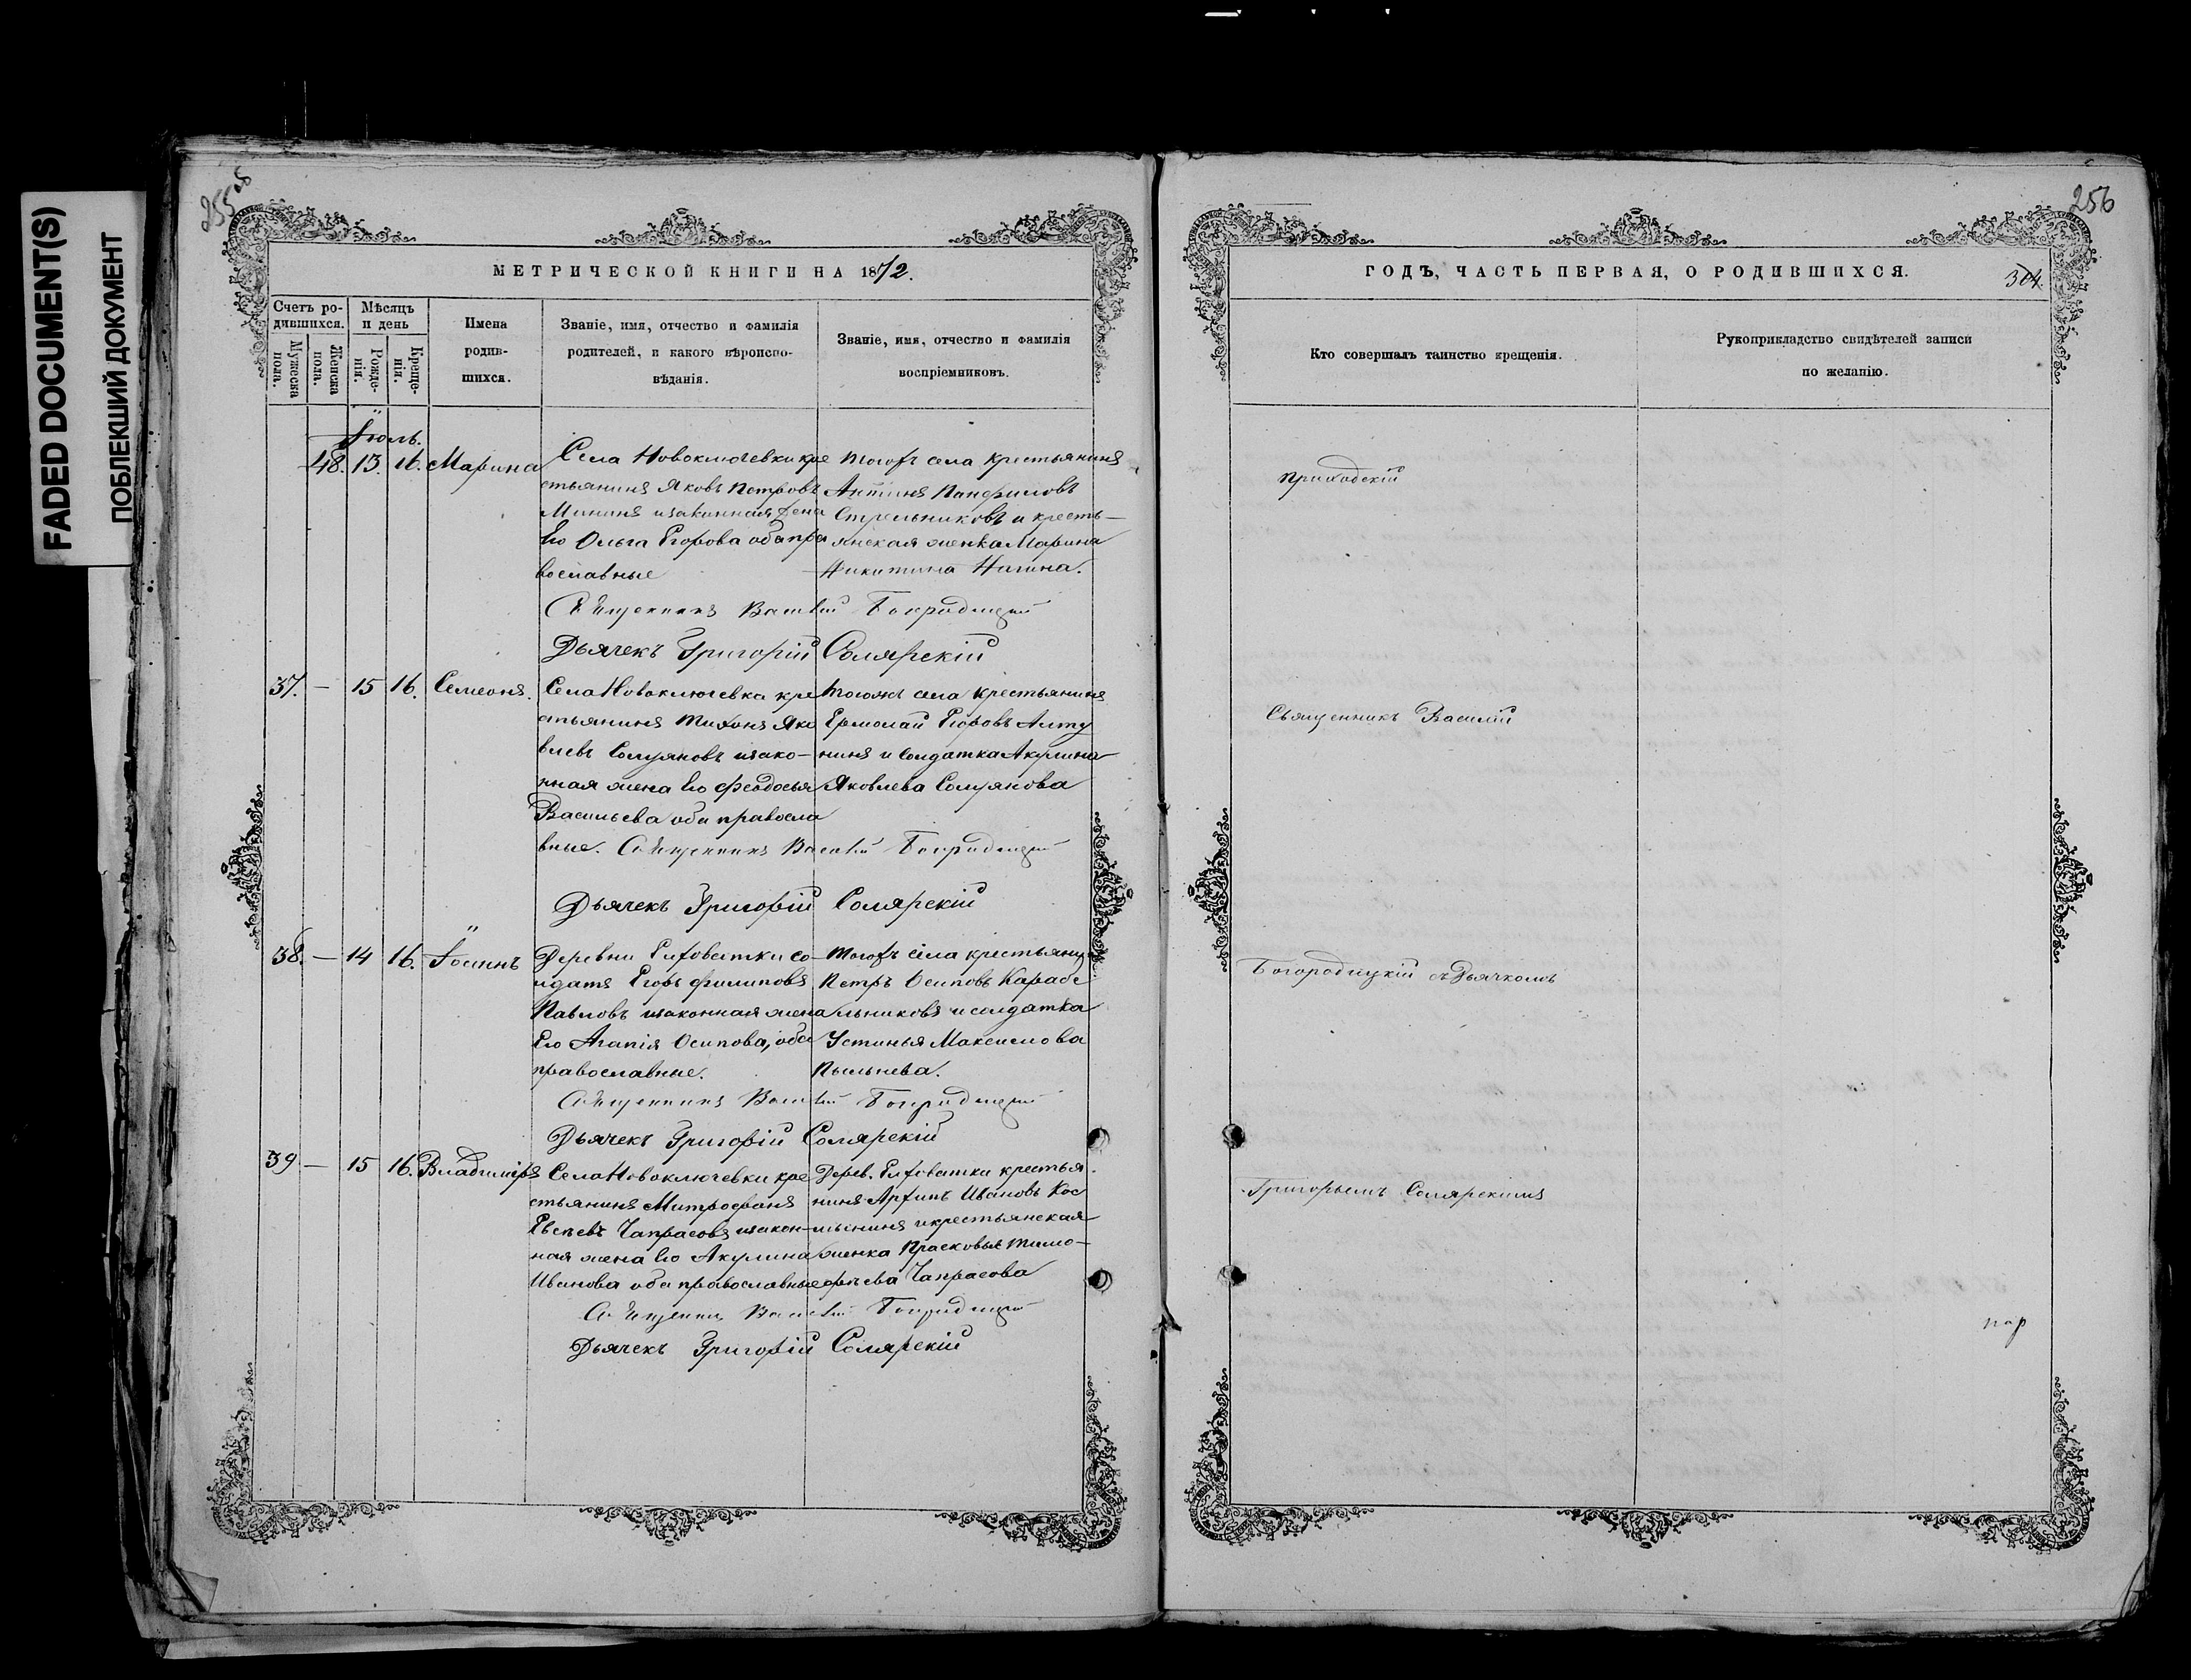 FADED DOCUMENT(S)
ПОБЛЕКШИЙ ДОКУМЕНТ
255
МЕТРИЧЕСКОЙ КНИГИ НА 1872.
Счетъ ро-
дившихся.
Мужеска
пола.
Женска
пола.
Мѣсяцъ
и день
Рожде-
нія.
Креще-
нія.
Имена
родив-
шихся.
Званіе, имя, отчество и фамилія
родителей, и какого вѣроиспо-
вѣданія.
Званіе, имя, отчество и фамилія
воспріемниковъ.
Іюль.
48. 13. 16. Марина
Села Новоключевки кре
стьянинъ Яковъ Петровъ
Мининъ и законная жена
Его Ольга Егорова оба пра
вославные
Тогожъ села крестьянинъ
Антинъ Панфиловъ
Стрельниковъ и кресть-
янская женка Марина
Никитина
Священникъ Василій Богородицкій
Дьячекъ Григорій Солярскій
37. — 15 16. Семеонъ.
Села Новоключевки кре
стьянинъ Тихонъ Яко
влевъ и зако-
нная жена Его Феодосья
Васильева оба правосла
вные.
Тогожъ села крестьянинъ
Ермолай Егоровъ Алту
нинъ и солдатка Акулина
Яковлева
Священникъ Василій Богородицкій
Дьячекъ Григорій Солярскій
38. — 14 16. Іоаннъ
Деревни Елховатки со-
лдатъ Егоръ Филиповъ
Павловъ и законная жена
Его Агапія Осипова, оба
православные.
Тогожъ села крестьянинъ
Петръ Осиповъ Карабе
льниковъ и солдатка
Устинья Максимова
Пыльнева.
Священникъ Василій Богородицкій
Дьячекъ Григорій Солярскій
39 — 15 16. Владиміръ
Села Новоключевки кре
стьянинъ Митрофанъ
Евсѣевъ Чапрасовъ и закон-
ная жена Его Акулина
Иванова оба православные
Дерев. Елховатки крестья-
нинъ Архипъ Ивановъ Кос
и крестьянская
женка Прасковья Тимо-
фѣева Чапрасова
Священникъ Василій Богородицкій
Дьячекъ Григорій Солярскій
256
ГОДЪ, ЧАСТЬ ПЕРВАЯ, О РОДИВШИХСЯ.
304.
Кто совершалъ таинство крещенія.
Рукоприкладство свидѣтелей записи
по желанію.
Приходскій
Священникъ Василій
Богородицкій съ Дьячкомъ
Григорьемъ Солярскимъ